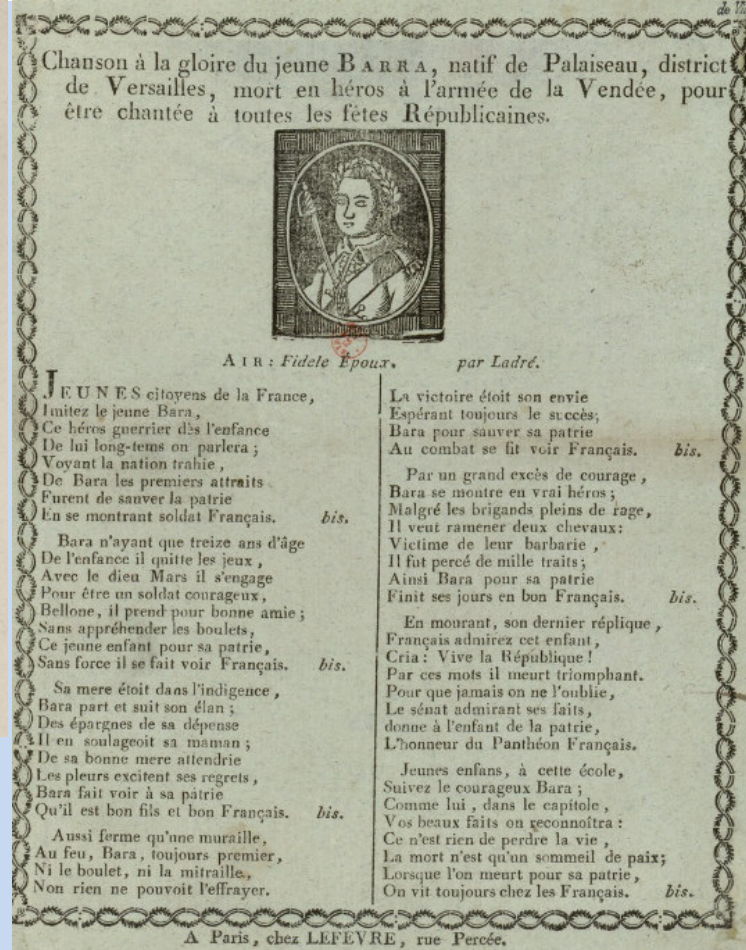 de
Chanson à la gloire du jeune BARRA, natif de Palaiseau, district
de Versailles, mort en héros à l'armée de la Vendée, pour
être chantée à toutes les fêtes Républicaines.
AIR: Fidele Epoux. par Ladré.
JEUNES citoyens de la France,
Imitez le jeune Bara,
Ce héros guerrier dès l'enfance
De lui long-tems on parlera ;
Voyant la nation trahie,
De Bara les premiers attraits
Furent de sauver la patrie
En se montrant soldat Français. bis.
Bara n'ayant que treize ans d'âge
De l'enfance il quitte les jeux,
Avec le dieu Mars il s'engage
Pour être un soldat courageux,
Bellone, il prend pour bonne amie ;
Sans appréhender les boulets,
Ce jeune enfant pour sa patrie,
Sans force il se fait voir Français. bis.
Sa mere étoit dans l'indigence,
Bara part et suit son élan ;
Des épargnes de sa dépense
Il en soulageoit sa maman ;
De sa bonne mere attendrie
Les pleurs excitent ses regrets,
Bara fait voir à sa patrie
Qu'il est bon fils et bon Français. bis.
Aussi ferme qu'une muraille,
Au feu, Bara, toujours premier,
Ni le boulet, ni la mitraille,
Non rien ne pouvoit l'effrayer.
La victoire étoit son envie
Espérant toujours le succès;
Bara pour sauver sa patrie
Au combat se fit voir Français. bis.
Par un grand excès de courage,
Bara se montre en vrai héros ;
Malgré les brigands pleins de rage,
Il veut ramener deux chevaux:
Victime de leur barbarie,
Il fut percé de mille traits ;
Ainsi Bara pour sa patrie
Finit ses jours en bon Français. bis.
En mourant, son dernier réplique,
Français admirez cet enfant,
Cria: Vive la République !
Par ces mots il meurt triomphant.
Pour que jamais on ne l'oublie,
Le sénat admirant ses faits,
donne à l'enfant de la patrie,
L'honneur du Panthéon Français.
Jeunes enfans, à cette école,
Suivez le courageux Bara ;
Comme lui, dans le capitole,
Vos beaux faits on reconnoîtra :
Ce n'est rien de perdre la vie,
La mort n'est qu'un sommeil de paix;
Lorsque l'on meurt pour sa patrie,
On vit toujours chez les Français. bis.
A Paris, chez LEFEVRE, rue Percée.